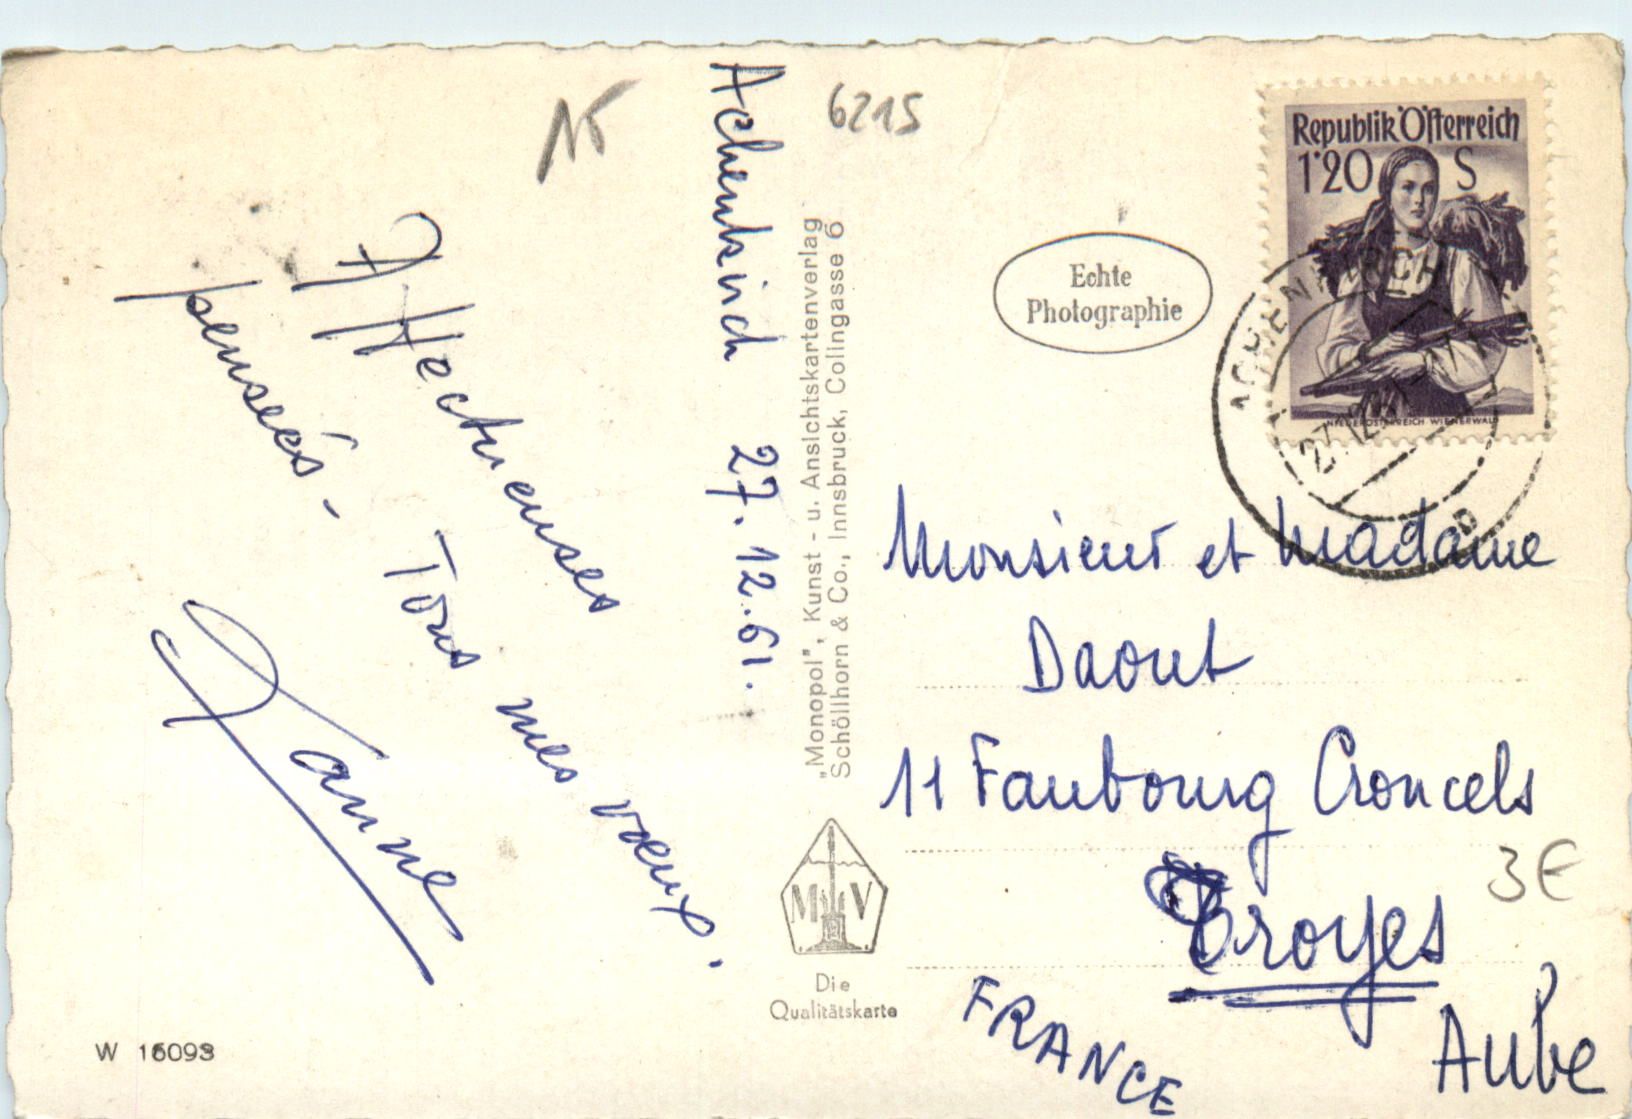 Achenkirch 27.12.61.
Affectueuses
pensées -
Tous mes voeux.
6215
"Monopol", Kunst - u. Ansichtskartenverlag
Schöllhorn & Co., Innsbruck, Colingasse 6
M V
Die
Qualitätskarte
W 16093
Echte
Photographie
Republik Österreich
1·20 S
NIEDERÖSTERREICH WIENERWALD
ACHENKIRCH
27.12.61
Monsieur et Madame
Daout
11 Faubourg Croncels
Troyes
Aube
FRANCE
3€